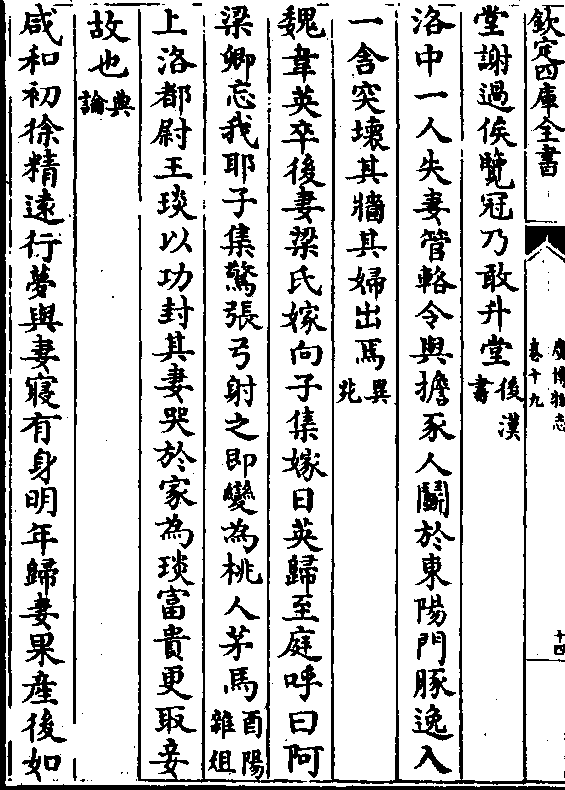 欽定四庫全書
廣博物志
卷十九
十四
堂謝過俟覽冠乃敢升堂後漢書
洛中一人失妻管輅令與擔豕人鬬於東陽門豚逸入
一舍突壞其牆其婦出焉異死
魏韋英卒後妻梁氏嫁向子集嫁日英歸至庭呼曰阿
梁卿忘我耶子集驚張弓射之即變為桃人茅馬酉陽雜俎
上洛都尉王琰以功封其妻哭於家為琰富貴更取妾
故也典論
咸和初徐精遠行夢與妻寢有身明年歸妻果產後如